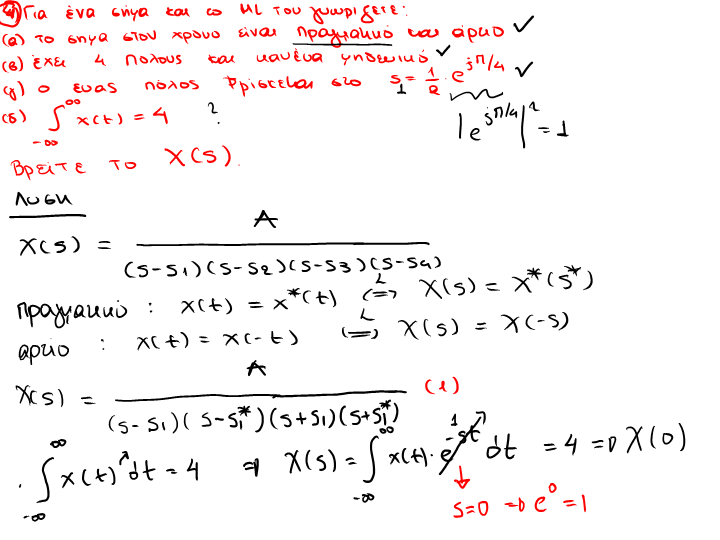 4) Για ένα σήμα και το ML του γνωρίζετε:
(α) το σημα στον χρονο είναι πραγματικό και άρτιο ✓
(β) έχει 4 πολους και κανένα μηδενικό ✓
(γ) ο ενας πόλος βρίσκεται στο s₁ = 1/2 · e^{jπ/4} ✓
(δ) ∫_{-∞}^{∞} x(t) = 4 ?
|e^{jπ/4}|² = 1
Βρείτε το X(s).
Λυση
X(s) = A / (s-s1)(s-s2)(s-s3)(s-s4)
πραγματικό : x(t) = x*(t) ⇔ᴸ X(s) = X*(s*)
αρτιο : x(t) = x(-t) ⇔ᴸ X(s) = X(-s)
X(s) = A / (s-s1)(s-s1*)(s+s1)(s+s1*) (1)
. ∫_{-∞}^{∞} x(t) dt = 4 ⇒ X(s) = ∫_{-∞}^{∞} x(t) · e^{-st} 1 dt = 4 ⇒ X(0)
↓
s=0 ⇒ e⁰ = 1